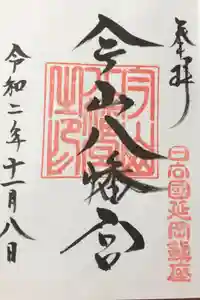 奉拝
日向國延岡鎮座
今山八幡宮
令和二年十一月八日